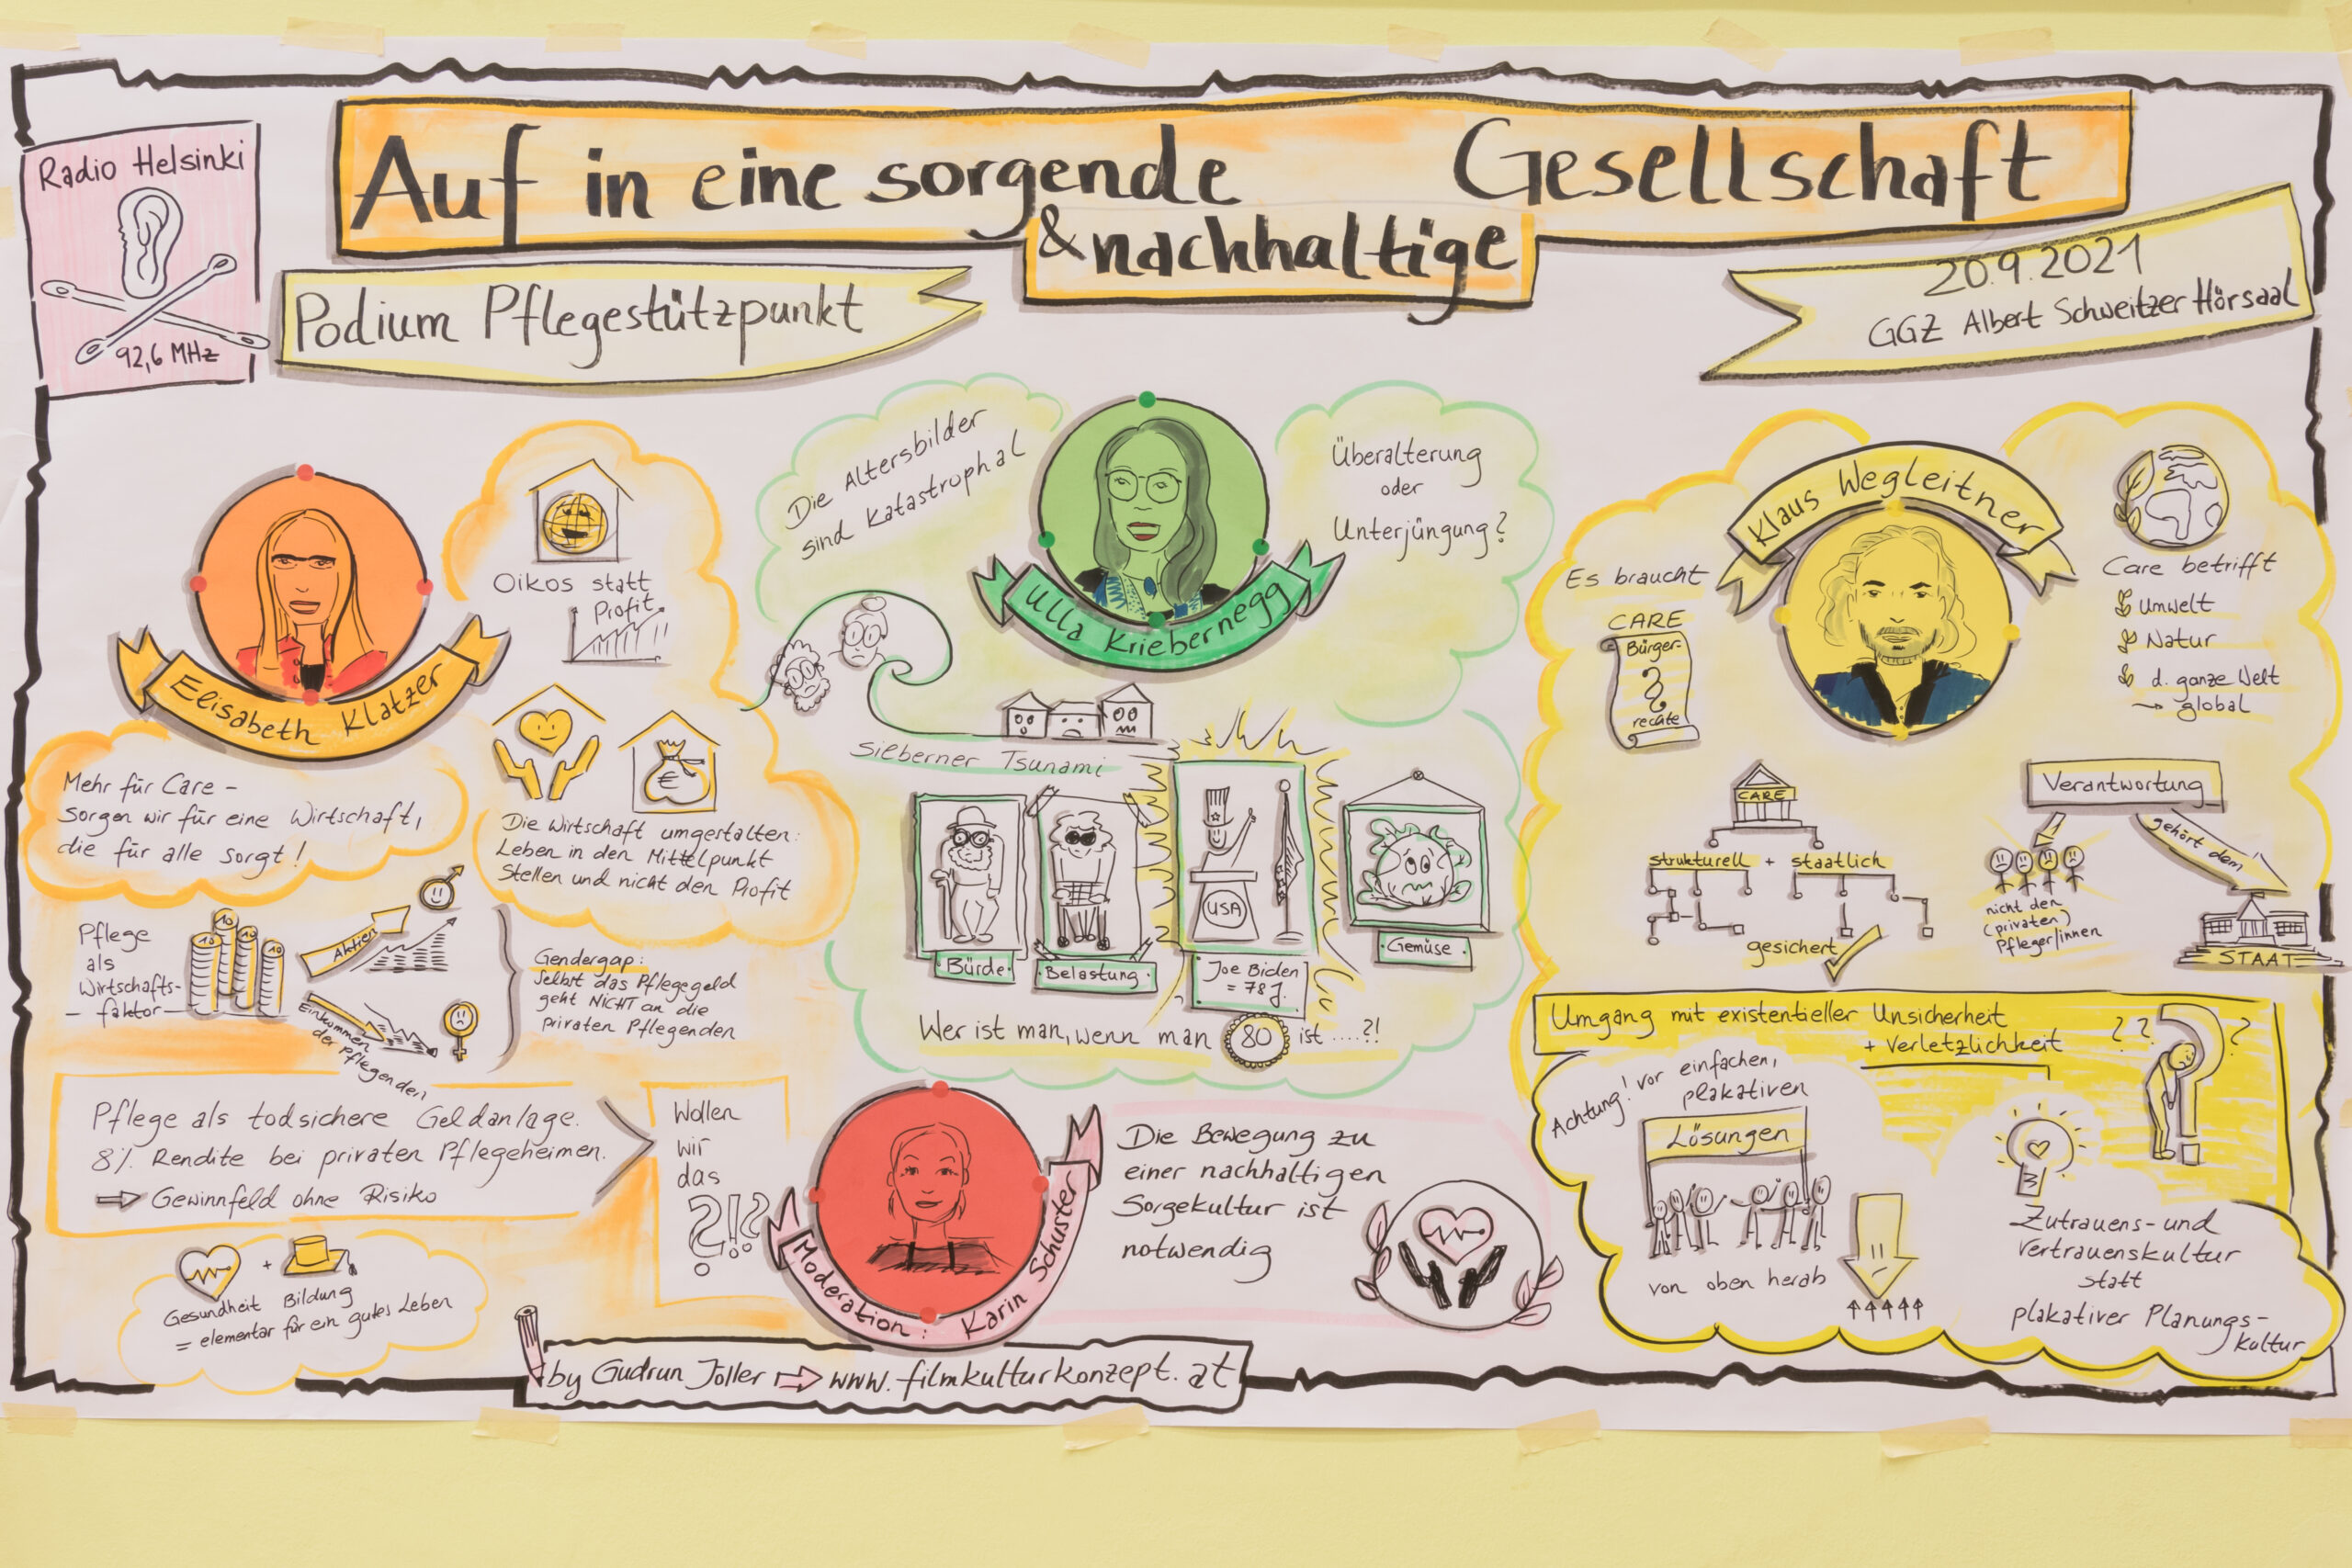 Radio Helsinki
92,6 MHz
Auf in eine sorgende
& nachhaltige
Gesellschaft
Podium Pflegestützpunkt
20.9.2021
GGZ Albert Schweitzer Hörsaal
Elisabeth Klatzer
Oikos statt
Profit
Mehr für Care -
sorgen wir für eine Wirtschaft,
die für alle sorgt!
€
Die Wirtschaft umgestalten:
Leben in den Mittelpunkt
Stellen und nicht den Profit
Pflege
als
Wirtschafts-
faktor
10
10
10
10
Aktien
Einkommen
der Pflegenden
Gendergap:
Selbst das Pflegegeld
geht NICHT an die
privaten Pflegenden
Pflege als todsichere Geldanlage.
8% Rendite bei privaten Pflegeheimen.
⇒ Gewinnfeld ohne Risiko
Wollen
wir
das
?!!?
Gesundheit + Bildung
= elementar für ein gutes Leben
Die Altersbilder
sind katastrophal
Ulla Kriebernegg
Überalterung
oder
Unterjüngung?
Silberner Tsunami
Bürde
Belastung
USA
Joe Biden
= 78 J.
Gemüse
Wer ist man, wenn man 80 ist ....?!
Moderation: Karin Schuster
Die Bewegung zu
einer nachhaltigen
Sorgekultur ist
notwendig
Klaus Wegleitner
Es braucht
CARE
Bürger-
rechte
Care betrifft
Umwelt
Natur
d. ganze Welt
→ global
CARE
strukturell + staatlich
gesichert
Verantwortung
gehört dem
nicht den
(privaten)
Pfleger/innen
STAAT
Umgang mit existentieller Unsicherheit
+ Verletzlichkeit
? ? ?
Achtung! vor einfachen,
plakativen
Lösungen
von oben herab
Zutrauens- und
Vertrauenskultur
statt
plakativer Planungs-
kultur
by Gudrun Jöller ⇨ www.filmkulturkonzept.at